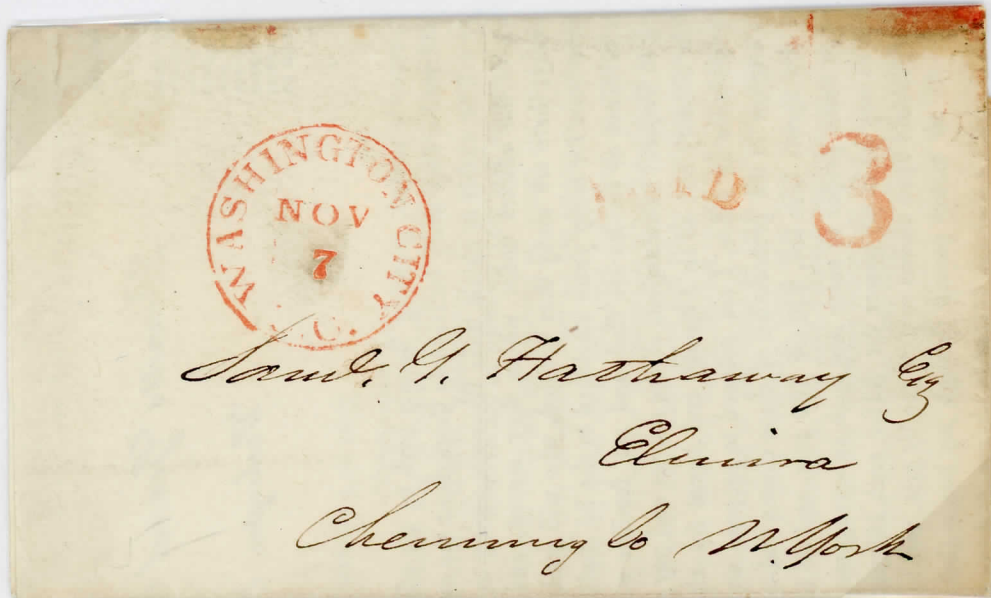 WASHINGTON CITY
NOV
7
3
Saml. G. Hathaway Esq
Elmira
Chemung Co N. York